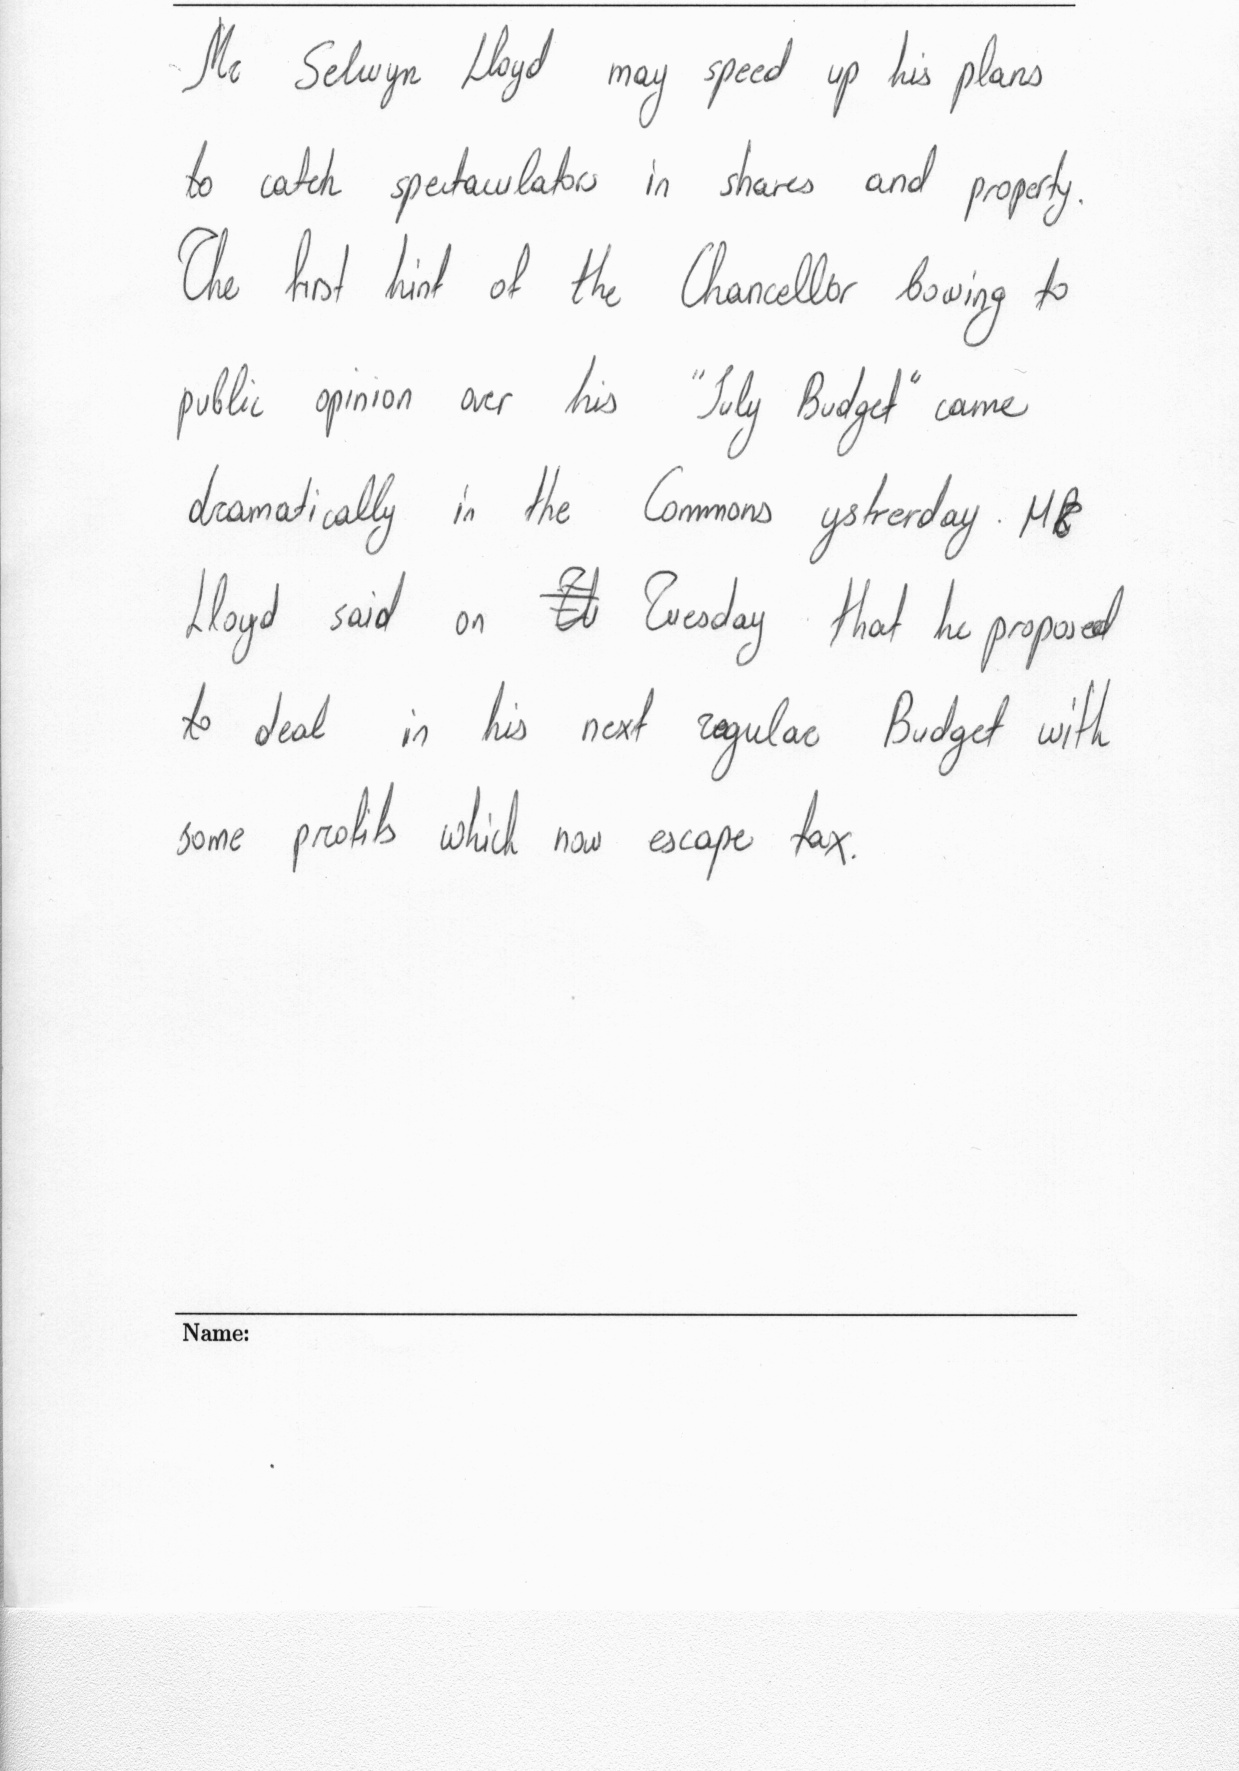 Mr Selwyn Lloyd may speed up his plans
to catch spectaculators in shares and property.
The first hint of the Chancellor bowing to
public opinion over his "July Budget" came
dramatically in the Commons ystrerday. MR
Lloyd said on Tuesday that he proposed
to deal in his next regular Budget with
some profits which now escape tax.
Name: